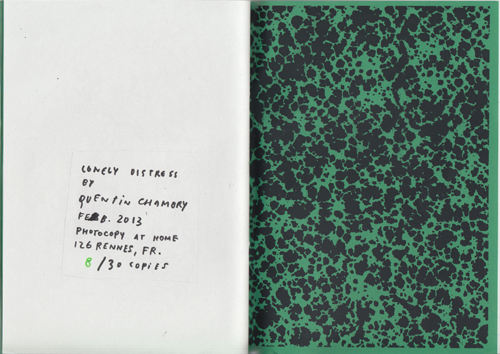 LONELY DISTRESS
BY
QUENTIN CHAMBRY
FEB. 2013
PHOTOCOPY AT HOME
126 RENNES, FR.
8/30 COPIES